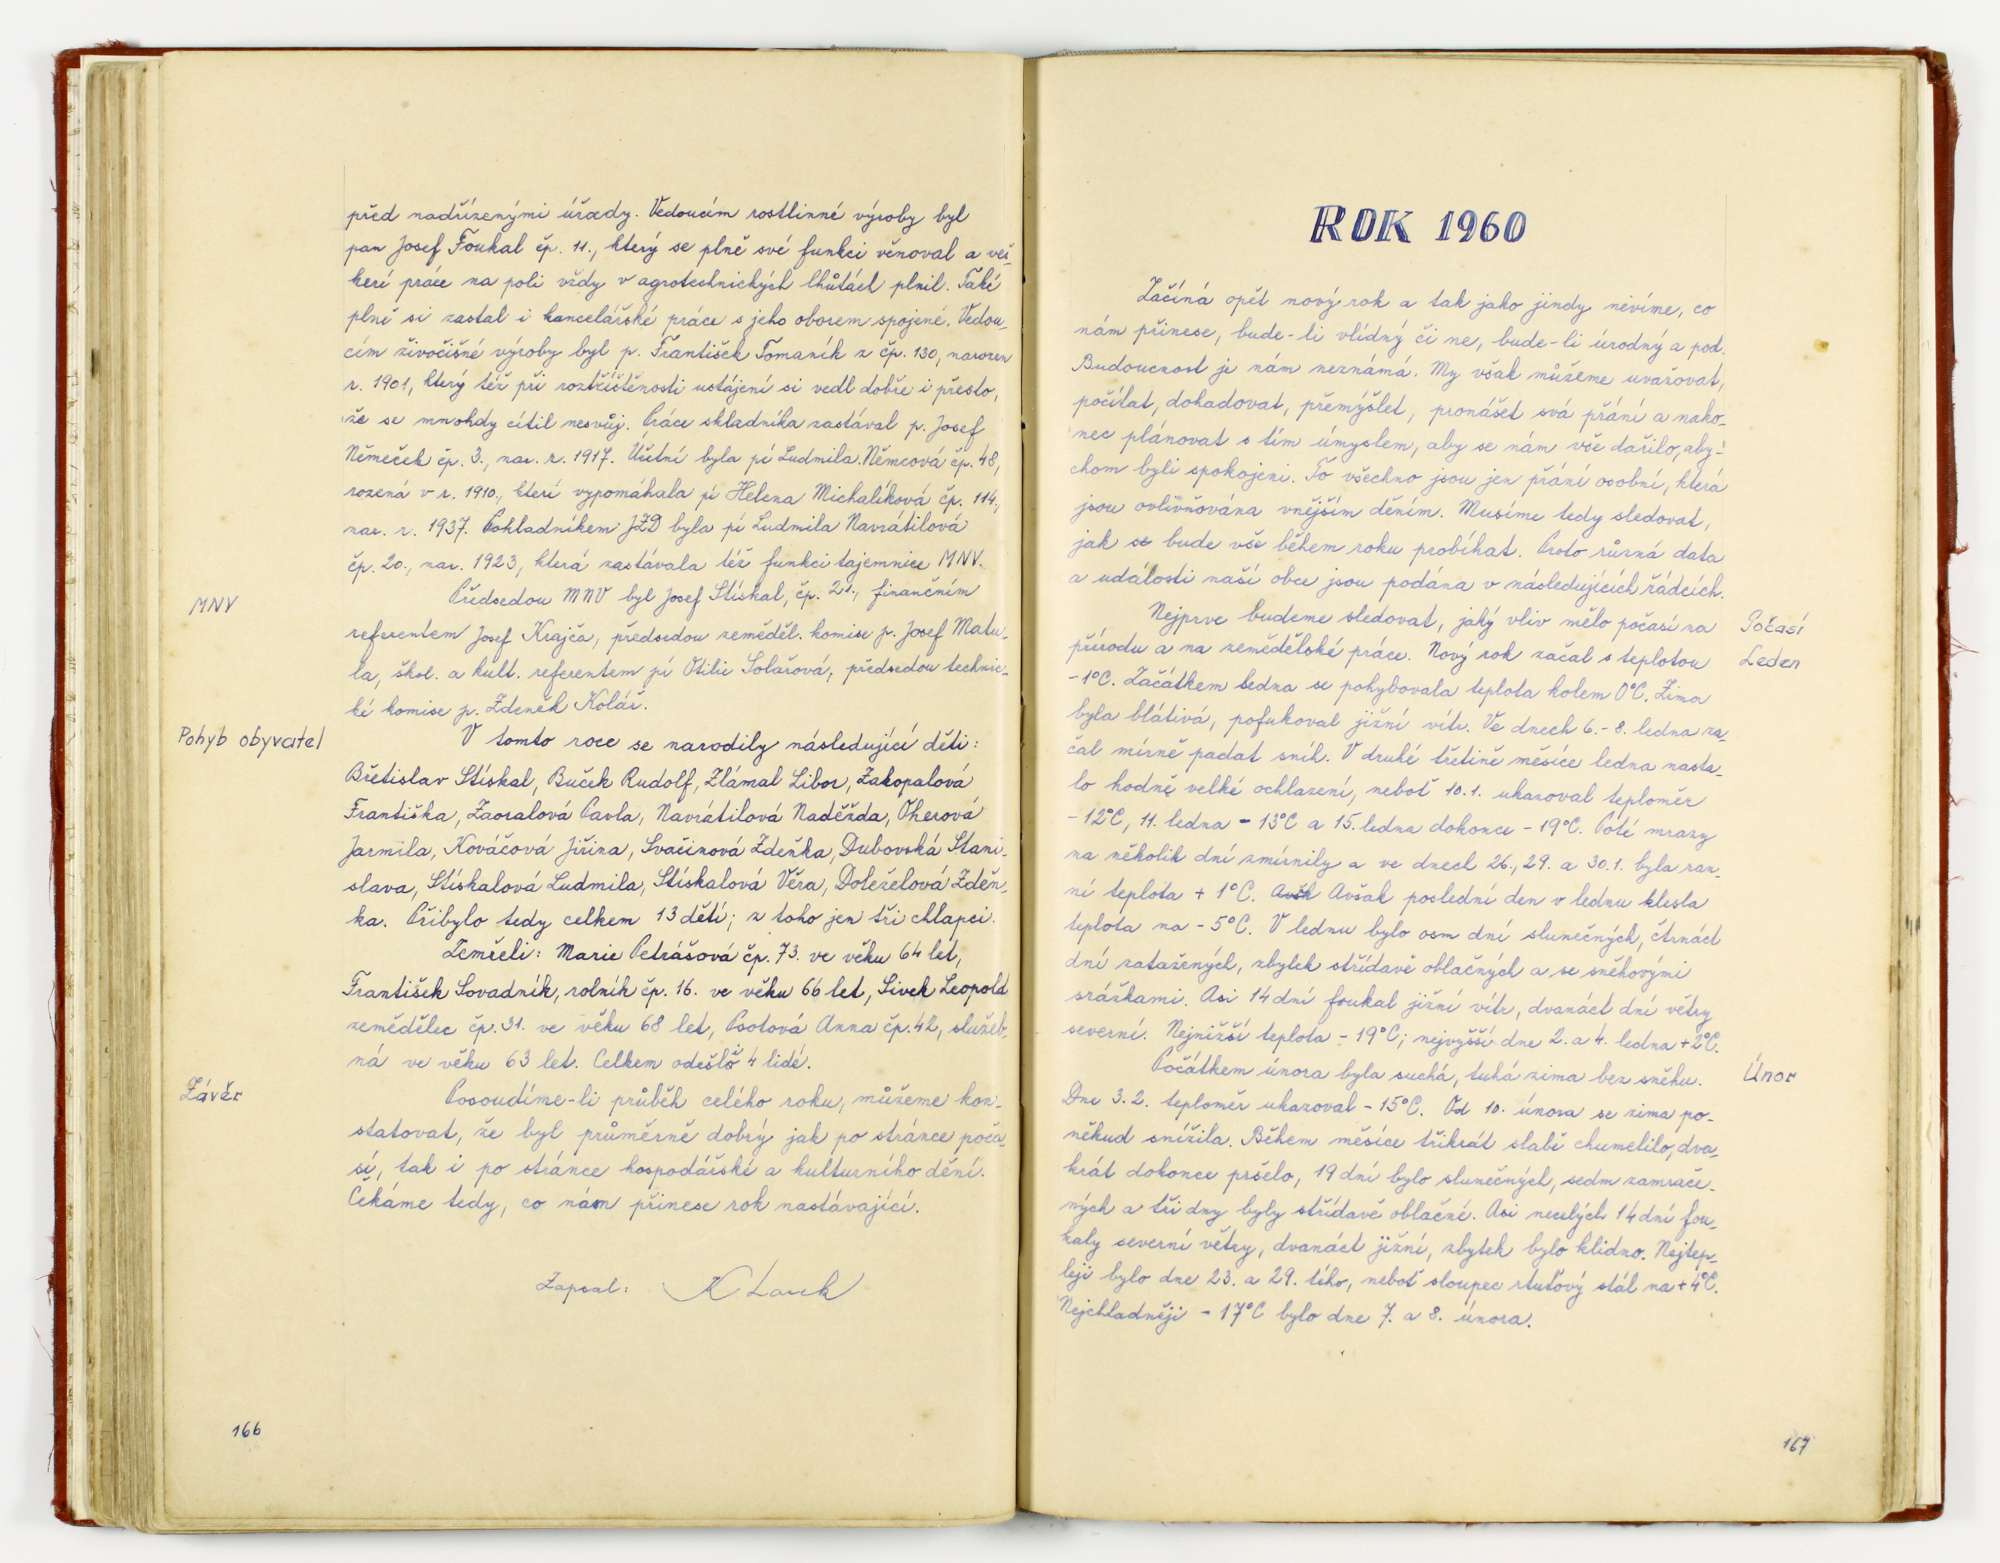 před nadřízenými úřady. Vedoucím rostlinné výroby byl
pan Josef Foukal čp. 11., který se plně své funkci věnoval a veš-
keré práce na poli vždy v agrotechnických lhůtách plnil. Také
plně si zastal i kancelářské práce s jeho oborem spojené. Vedou-
cím živočišné výroby byl p. František Tomaník z čp. 130, narozen
r. 1901, který též při roztříštěnosti ustájení si vedl dobře i přesto,
že se mnohdy cítil nesvůj. Práce skladníka zastával p. Josef
Němeček čp. 3., nar. r. 1917. Účetní byla pí Ludmila Němcová čp. 48,
rozená v r. 1910., které vypomáhala pí Helena Michalíková čp. 114,
nar. r. 1937. Pokladníkem JZD byla pí Ludmila Navrátilová
čp. 20., nar. 1923, která zastávala též funkci tajemnice MNV.
MNV
Předsedou MNV byl Josef Stískal, čp. 21., finančním
referentem Josef Krajča, předsedou zeměděl. komise p. Josef Matu-
la, škol. a kult. referentem pí Otilie Solařová, předsedou technic-
ké komise p. Zdeněk Kolář.
Pohyb obyvatel
V tomto roce se narodily následující děti:
Břetislav Stískal, Buček Rudolf, Zlámal Libor, Zakopalová
Františka, Zaoralová Pavla, Navrátilová Naděžda, Oherová
Jarmila, Kováčová Jiřina, Svačinová Zdeňka, Dubovská Stani-
slava, Stískalová Ludmila, Stískalová Věra, Doleželová Zdeň-
ka. Přibylo tedy celkem 13 dětí; z toho jen tři chlapci.
Zemřeli: Marie Petrášová čp. 73. ve věku 64 let,
František Sovadník, rolník čp. 16. ve věku 66 let, Sivek Leopold
zemědělec čp. 31. ve věku 68 let, Psotová Anna čp. 42, služeb-
ná ve věku 63 let. Celkem odešlo 4 lidé.
Závěr
Posoudíme-li průběh celého roku, můžeme kon-
statovat, že byl průměrně dobrý jak po stránce poča-
sí, tak i po stránce hospodářské a kulturního dění.
Čekáme tedy, co nám přinese rok nastávající.
Zapsal:
166
ROK 1960
Začíná opět nový rok a tak jako jindy nevíme, co
nám přinese, bude-li vlídný či ne, bude-li úrodný a pod.
Budoucnost je nám neznámá. My však můžeme uvažovat,
počítat, dohadovat, přemýšlet, pronášet svá přání a nako-
nec plánovat s tím úmyslem, aby se nám vše dařilo, aby-
chom byli spokojeni. To všechno jsou jen přání osobní, která
jsou ovlivňována vnějším děním. Musíme tedy sledovat,
jak se bude vše během roku probíhat. Proto různá data
a události naší obce jsou podána v následujících řádcích.
Nejprve budeme sledovat, jaký vliv mělo počasí na
Počasí
přírodu a na zemědělské práce. Nový rok začal s teplotou
Leden
-1°C. Začátkem ledna se pohybovala teplota kolem 0°C. Zima
byla blátivá, pofukoval jižní vítr. Ve dnech 6.-8. ledna za-
čal mírně padat sníh. V druhé třetině měsíce ledna nasta-
lo hodně velké ochlazení, neboť 10.1. ukazoval teploměr
-12°C, 11. ledna -13°C a 15. ledna dokonce -19°C. Poté mrazy
na několik dní zmírnily a ve dnech 26., 29. a 30.1. byla ran-
ní teplota +1°C. Avšk Avšak poslední den v lednu klesla
teplota na -5°C. V lednu bylo osm dní slunečných, čtrnáct
dní zatažených, zbytek střídavě oblačných a se sněhovými
srážkami. Asi 14 dní foukal jižní vítr, dvanáct dní větry
severní. Nejnižší teplota -19°C; nejvyšší dne 2. a 4. ledna +2°C.
Počátkem února byla suchá, tuhá zima bez sněhu.
Únor
Dne 3.2. teploměr ukazoval -15°C. Od 10. února se zima po-
někud snížila. Během měsíce třikrát slabě chumelilo, dva-
krát dokonce pršelo, 19 dní bylo slunečných, sedm zamrače-
ných a tři dny byly střídavě oblačné. Asi necelých 14 dní fou-
kaly severní větry, dvanáct jižní, zbytek bylo klidno. Nejtep-
leji bylo dne 23. a 29. tého, neboť sloupec rtuťový stál na +4°C.
Nejchladněji -17°C bylo dne 7. a 8. února.
167